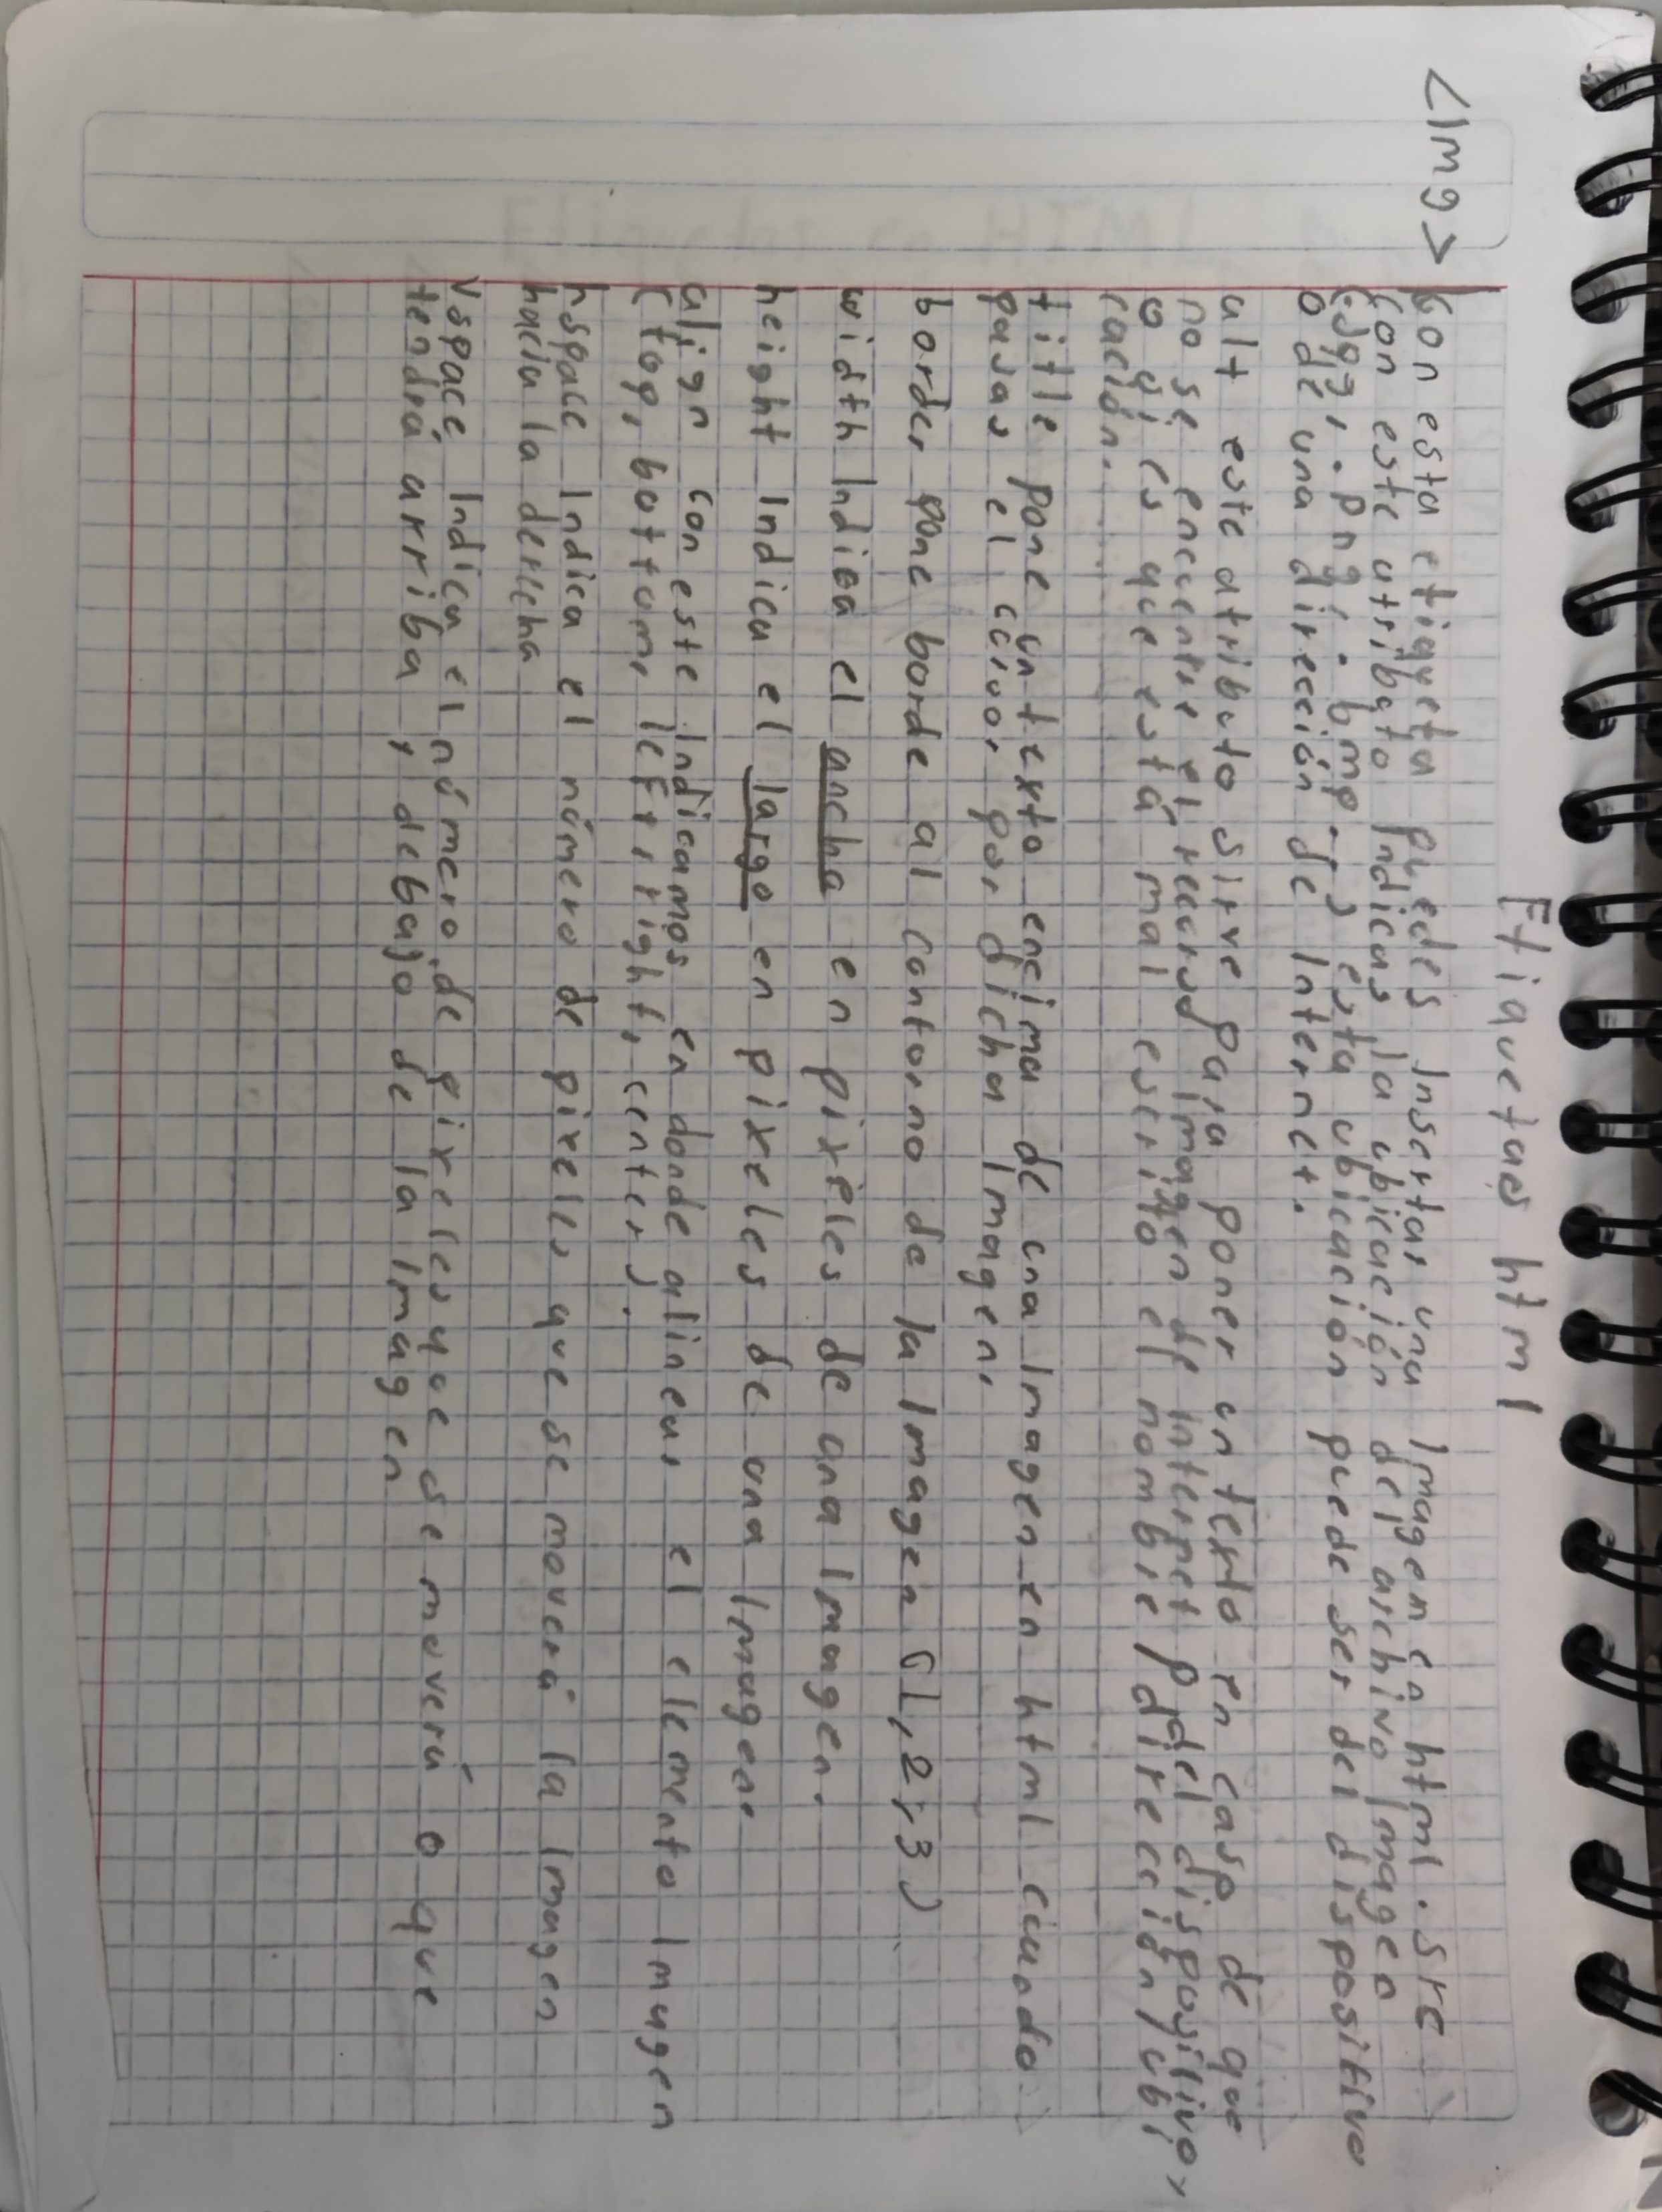 Etiquetas html
<Img> Con esta etiqueta puedes Insertar una Imagen en html. src
Con este atributo Indicas la ubicación del archivo Imagen
(.jpg, .png, .bmp...) esta ubicación puede ser del dispositivo
o de una dirección de Internet.
alt este atributo sirve para poner un texto en caso de que
no se encuentre el recurso Imagen de internet o del dispositivo,
o si es que está mal escrito el nombre / dirección / ubi
cación.
title pone un texto encima de una Imagen en html cuando
pasas el cursor por dicha Imagen.
border pone borde al contorno de la Imagen (1,2,3)
width Indica el ancha en pixeles de una Imagen.
height Indica el largo en pixeles de una Imagen.
align con este Indicamos en donde alinear el elemento Imagen
(top, bottom, left, right, center).
hspace Indica el número de pixeles que se moverá la Imagen
hacia la derecha
vspace Indica el número de pixeles que se moverá o que
tendrá arriba, debajo de la Imagen